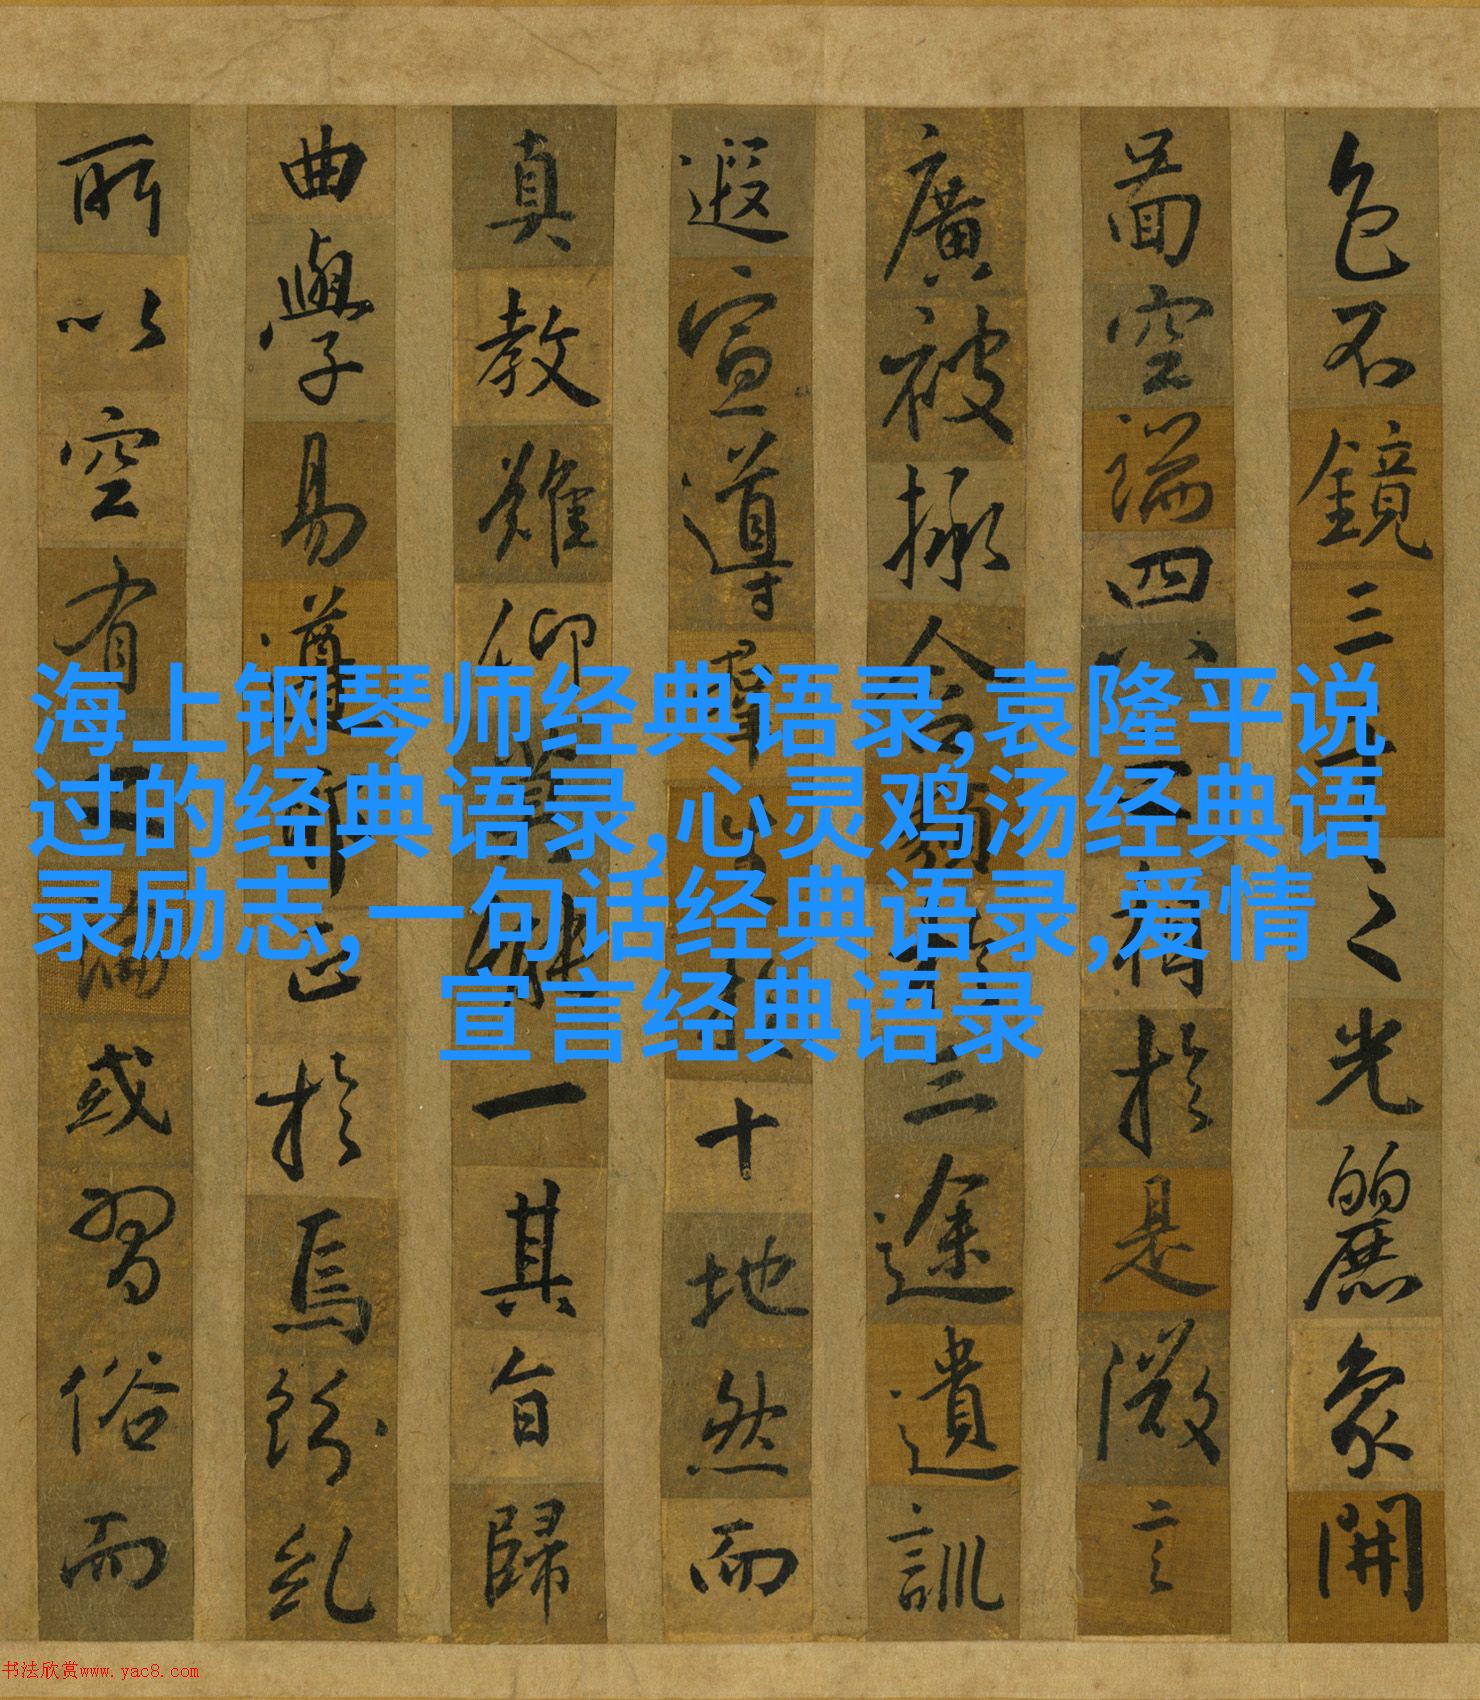 色不鏡三千之光麗象開
啚空端四八之相於是微言
廣被拯含類於三途遺訓
遐宣導羣生於十地然而
真教難仰莫能一其旨歸
曲學易遵耶正於焉紛糺
所以空有之論或習俗而
海上钢琴师经典语录,袁隆平说
过的经典语录,心灵鸡汤经典语
录励志,一句话经典语录,爱情
宣言经典语录
书法欣赏www.yac8.com